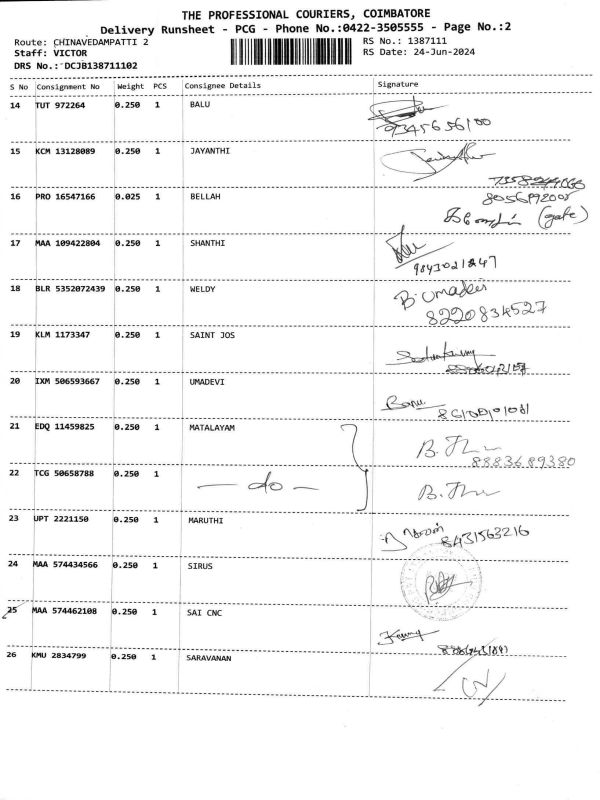 THE PROFESSIONAL COURIERS, COIMBATORE
Delivery Runsheet - PCG - Phone No.:0422-3505555 - Page No.:2
Route: CHINAVEDAMPATTI 2
RS No.: 1387111
Staff: VICTOR
RS Date: 24-Jun-2024
DRS No.: DCJB138711102
S No Consignment No Weight PCS Consignee Details Signature
14 TUT 972264 0.250 1 BALU
9345656100
15 KCM 13128089 0.250 1 JAYANTHI
16 PRO 16547166 0.025 1 BELLAH
(gate)
17 MAA 109422804 0.250 1 SHANTHI
9843021247
18 BLR 5352072439 0.250 1 WELDY
B. Umadevi
8220834527
19 KLM 1173347 0.250 1 SAINT JOS
20 IXM 506593667 0.250 1 UMADEVI
Banu
21 EDQ 11459825 0.250 1 MATALAYAM
8883689380
22 TCG 50658788 0.250 1 — do —
23 UPT 2221150 0.250 1 MARUTHI
8431563216
24 MAA 574434566 0.250 1 SIRUS
25 MAA 574462108 0.250 1 SAI CNC
26 KMU 2834799 0.250 1 SARAVANAN